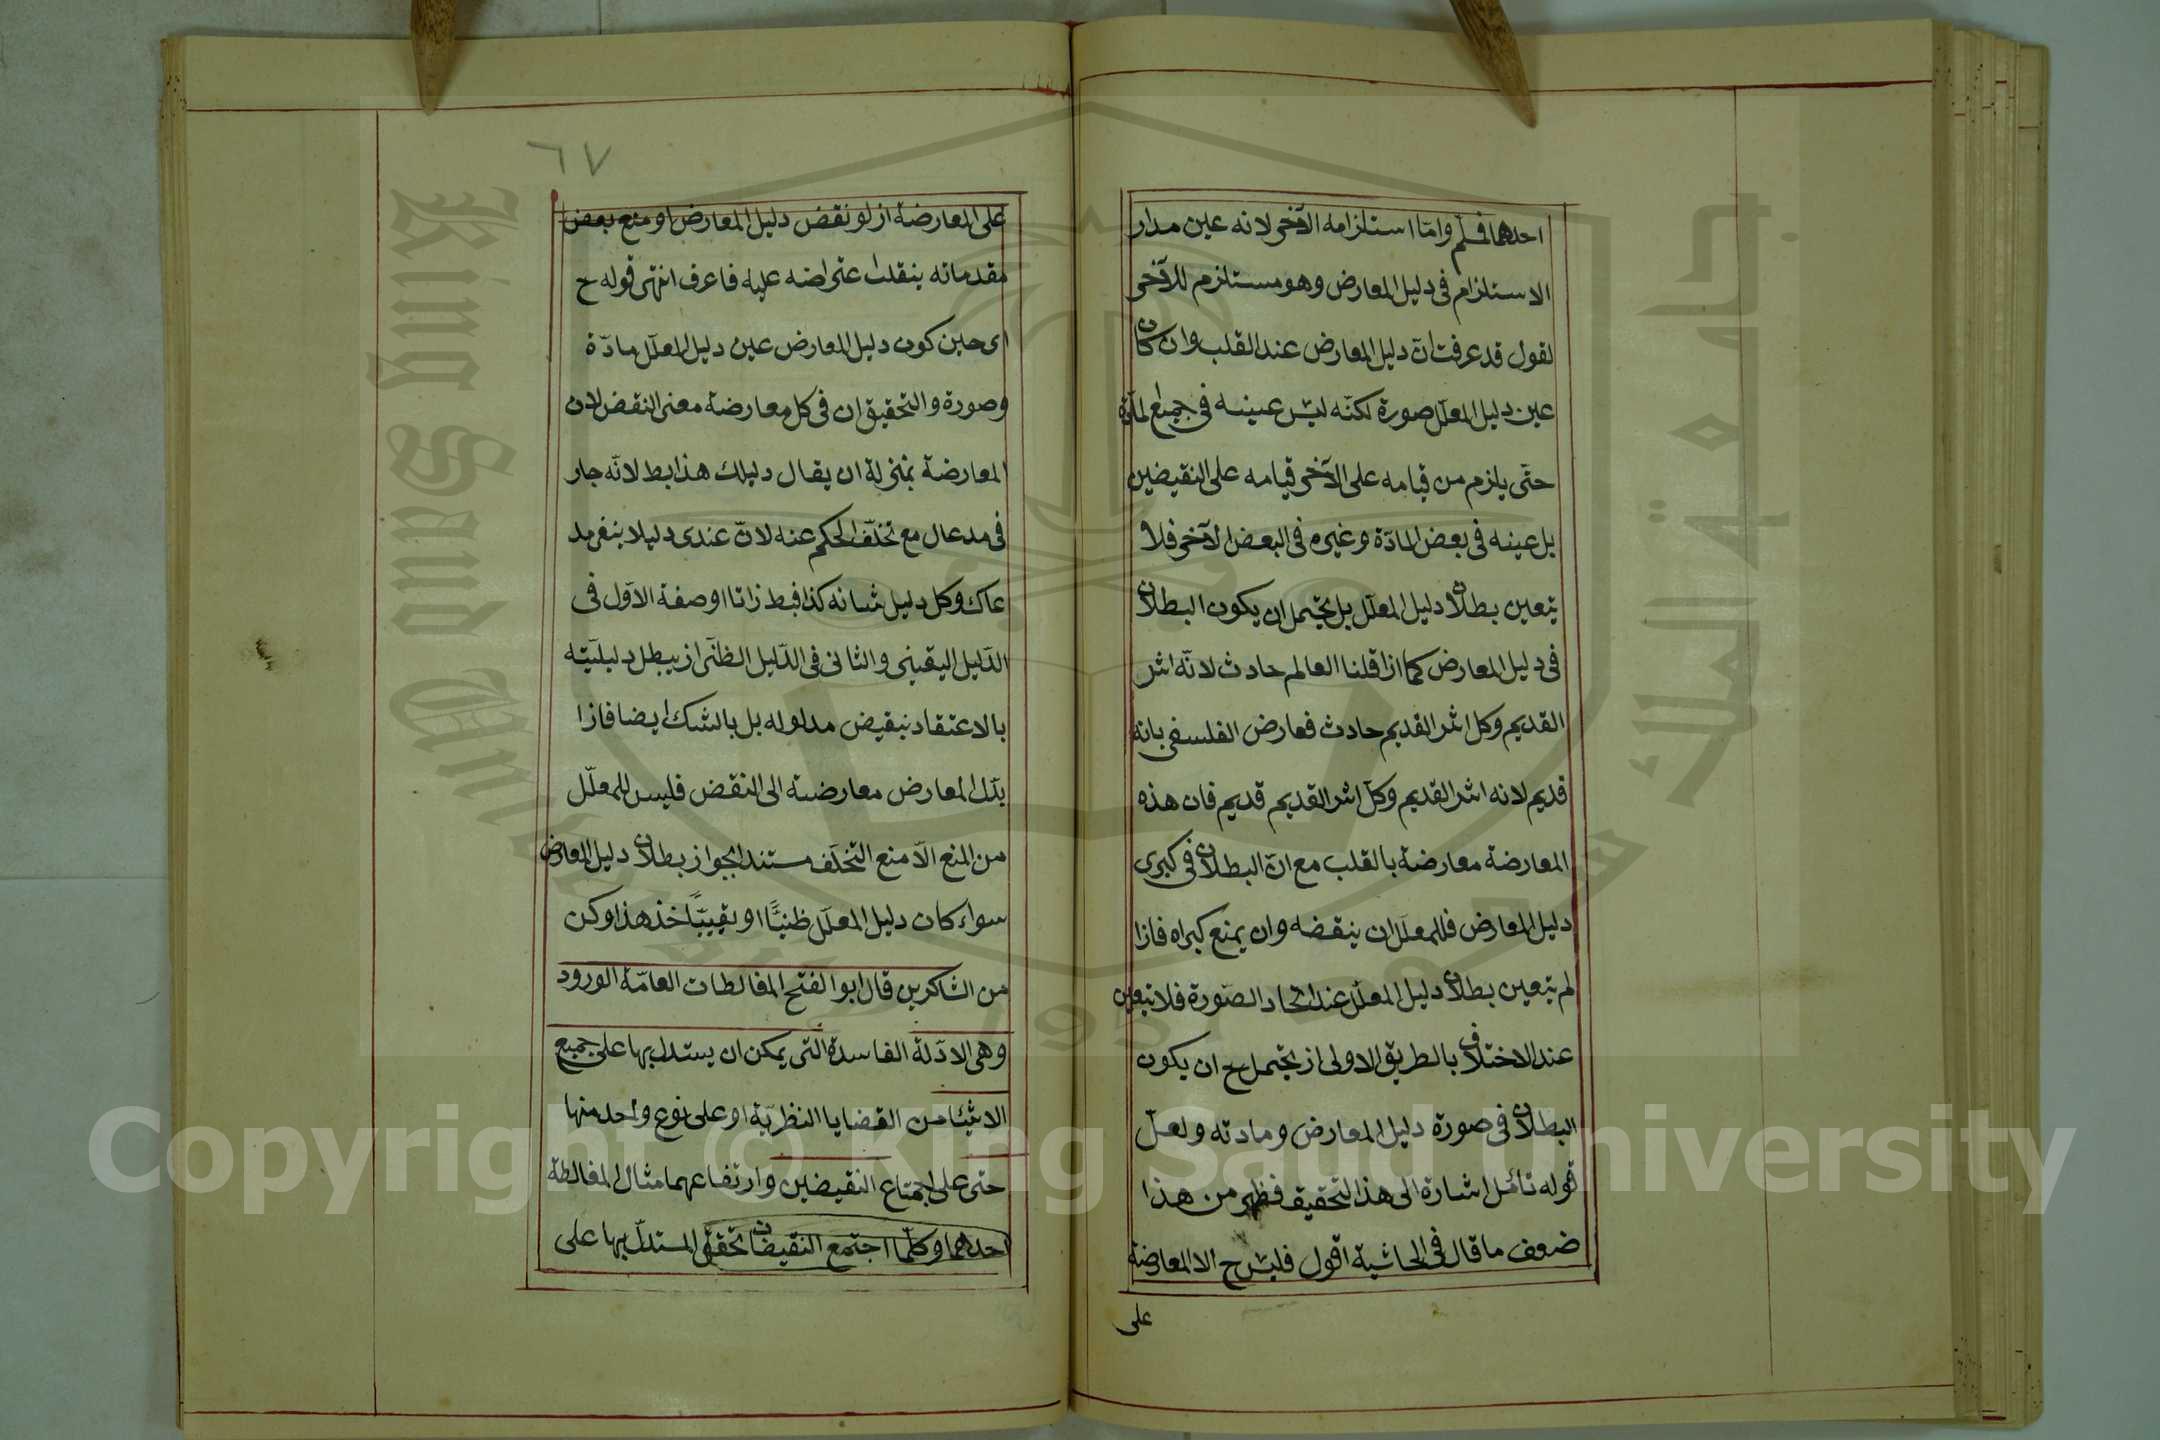 احدهما فسلم واما استلزامه الآخر لانه عين مدار
الاستلزام فى دليل المعارض وهو مستلزم للآخر
لقول قد عرفت انّ دليل المعارض عند القلب وان كان
عين دليل المعلّل صورة لكنّه ليس عينه فى جميع المادّة
حتّى يلزم من قيامه على الآخر قيامه على النقيضين
بل عينه فى بعض المادّة وغيره فى البعض الآخر فلا
يتعين بطلان دليل المعلّل بل يحتمل ان يكون البطلان
فى دليل المعارض كما اذا قلنا العالم حادث لانّه اثر
القديم وكل اثر القديم حادث فعارض الفلسفى بانه
قديم لانه اثر القديم وكلّ اثر القديم قديم فان هذه
المعارضة معارضة بالقلب مع انّ البطلان فى كبرى
دليل المعارض فللمعلّل ان ينقضه وان يمنع كبراه فاذا
لم يتعين بطلان دليل المعلّل عند اتحاد الصورة فلا يتعين
عند الاختلاف بالطريق الاولى اذ يحتمل ح ان يكون
البطلان فى صورة دليل المعارض ومادته ولعلّ
قوله تأمّل اشارة الى هذا التحقيق فظهر من هذا
ضعف ما قال فى الحاشية اقول فليس ح الا المعارضة
على
٦٧
على المعارضة اذ لو نقض دليل المعارض او منع بعض
مقدماته ينقلب اعتراضه عليه فاعرف انتهى قوله ح
اى حين كون دليل المعارض عين دليل المعلّل مادّة
وصورة والتحقيق ان فى كل معارضة معنى النقض لان
المعارضة بمنزلة ان يقال دليلك هذا بط لانّه جار
فى مدعاك مع تخلّف الحكم عنه لانّ عندى دليلا ينفى مد
عاك وكل دليل شانه كذا فبط ذاتا او صفة الاوّل فى
الدّليل اليقينى والثانى فى الدّليل الظنّى اذ يبطل دليليّته
بالاعتقاد بنقيض مدلوله بل بالشك ايضا فاذا
بدّل المعارض معارضته الى النقض فليس للمعلّل
من المنع الّا منع التخلّف مستندا بجواز بطلان دليل المعارض
سواء كان دليل المعلّل ظنيًّا او يقينيًّا خذ هذا وكن
من الشاكرين قال ابو الفتح المغالطات العامّة الورود
وهى الادلّة الفاسدة التى يمكن ان يستدلّ بها على جميع
الاشياء من القضايا النظريّة او على نوع واحد منها
حتى على اجتماع النقيضين وارتفاعهما مثال المغالطة
احدهما وكلّما اجتمع النقيضان تحقق المستدلّ بها على
Copyright © King Saud University
King Saud University
جامعة الملك سعود
1957